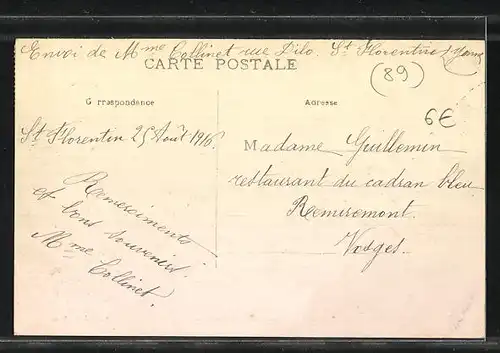 Envoi de Mme Collinet rue Dilo. St Florentin Yonne
CARTE POSTALE
(89)
Correspondance
Adresse
6€
St Florentin 25 Août 1916
Madame Guillemin
restaurant du cadran bleu
Remiremont.
Vosges.
Remerciements
et bons souvenirs.
Mme Collinet.